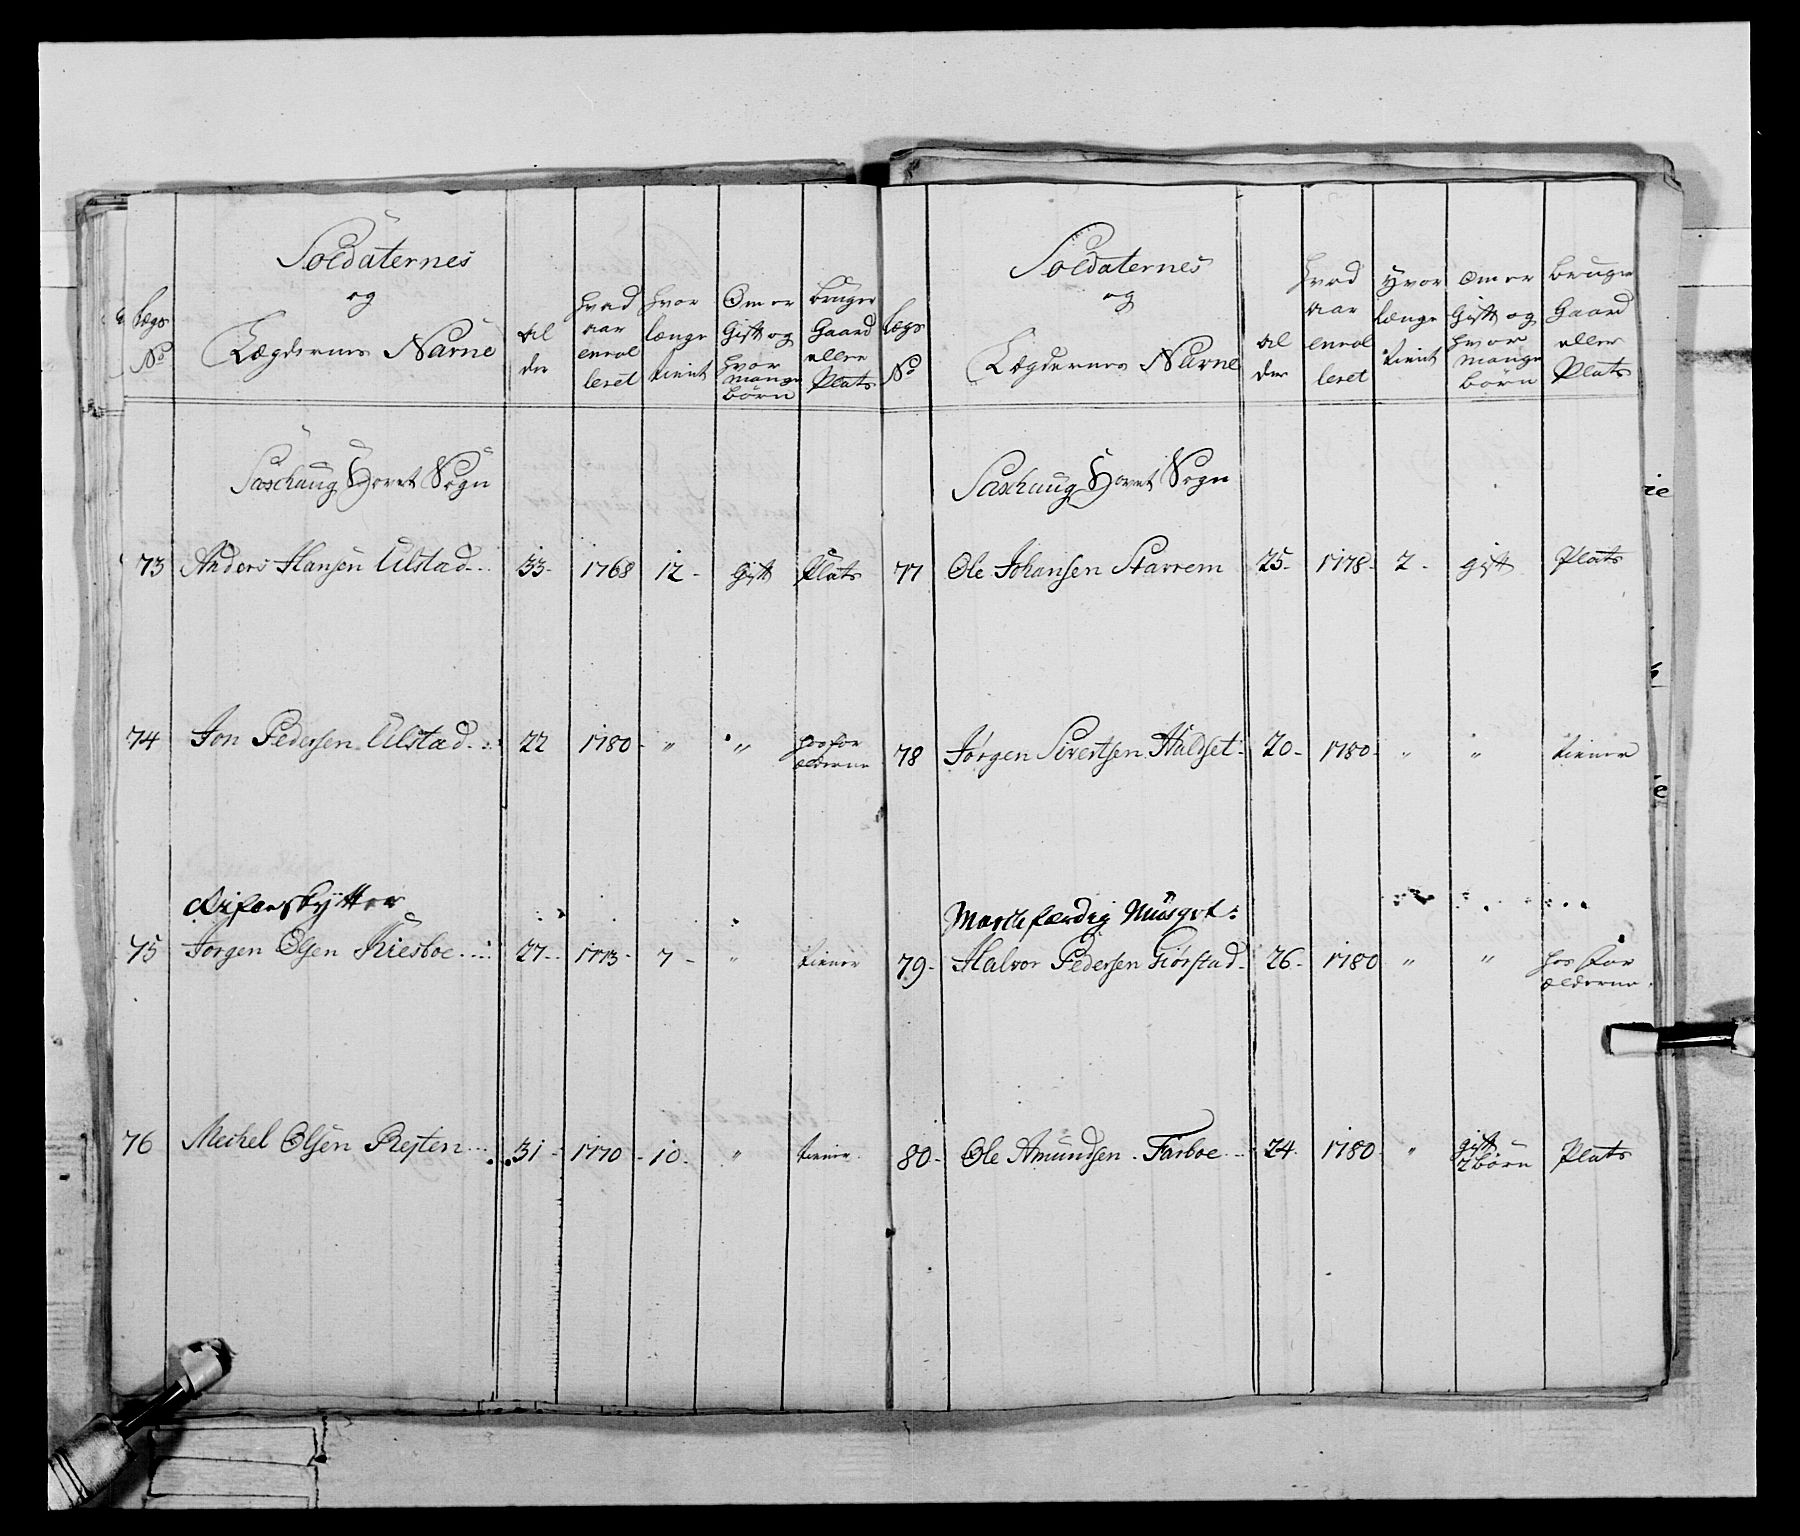 Lægs No | Soldaternes og Lægdernes Nafne | Al der | hvad aar enrol leret | hvor længe tient | Om er Gift og hvor mange börn | bruger Gaard eller Plats
Saxhaug Hovet Sogn
73 Anders Hansen Ulstad 33- 1768 12- Gift Plats
74 Jon Pedersen Ulstad 22 1780- " " hos for ælderne
75 Jørgen Olsen 27- 1773- 7- " tiener
76 Mechel Olsen Resten 31- 1770- 10- " tiener
Lægs No | Soldaternes og Lægdernes Nafne | Al der | hvad aar enrol leret | Hvor længe tient | Om er Gift og hvor mange börn | bruger Gaard eller Plats
Saxhaug Hovet Sogn
77 Ole Johansen Starrem 25- 1778- 2- gift Plats
78 Jørgen Sivertsen Haldset- 20- 1780- " " tiener
79- Halvor Pedersen Giørstad- 26- 1780 " " hos For ælderne
80- Ole Amundsen Farboe 24- 1780- " gift 2 börn Plats